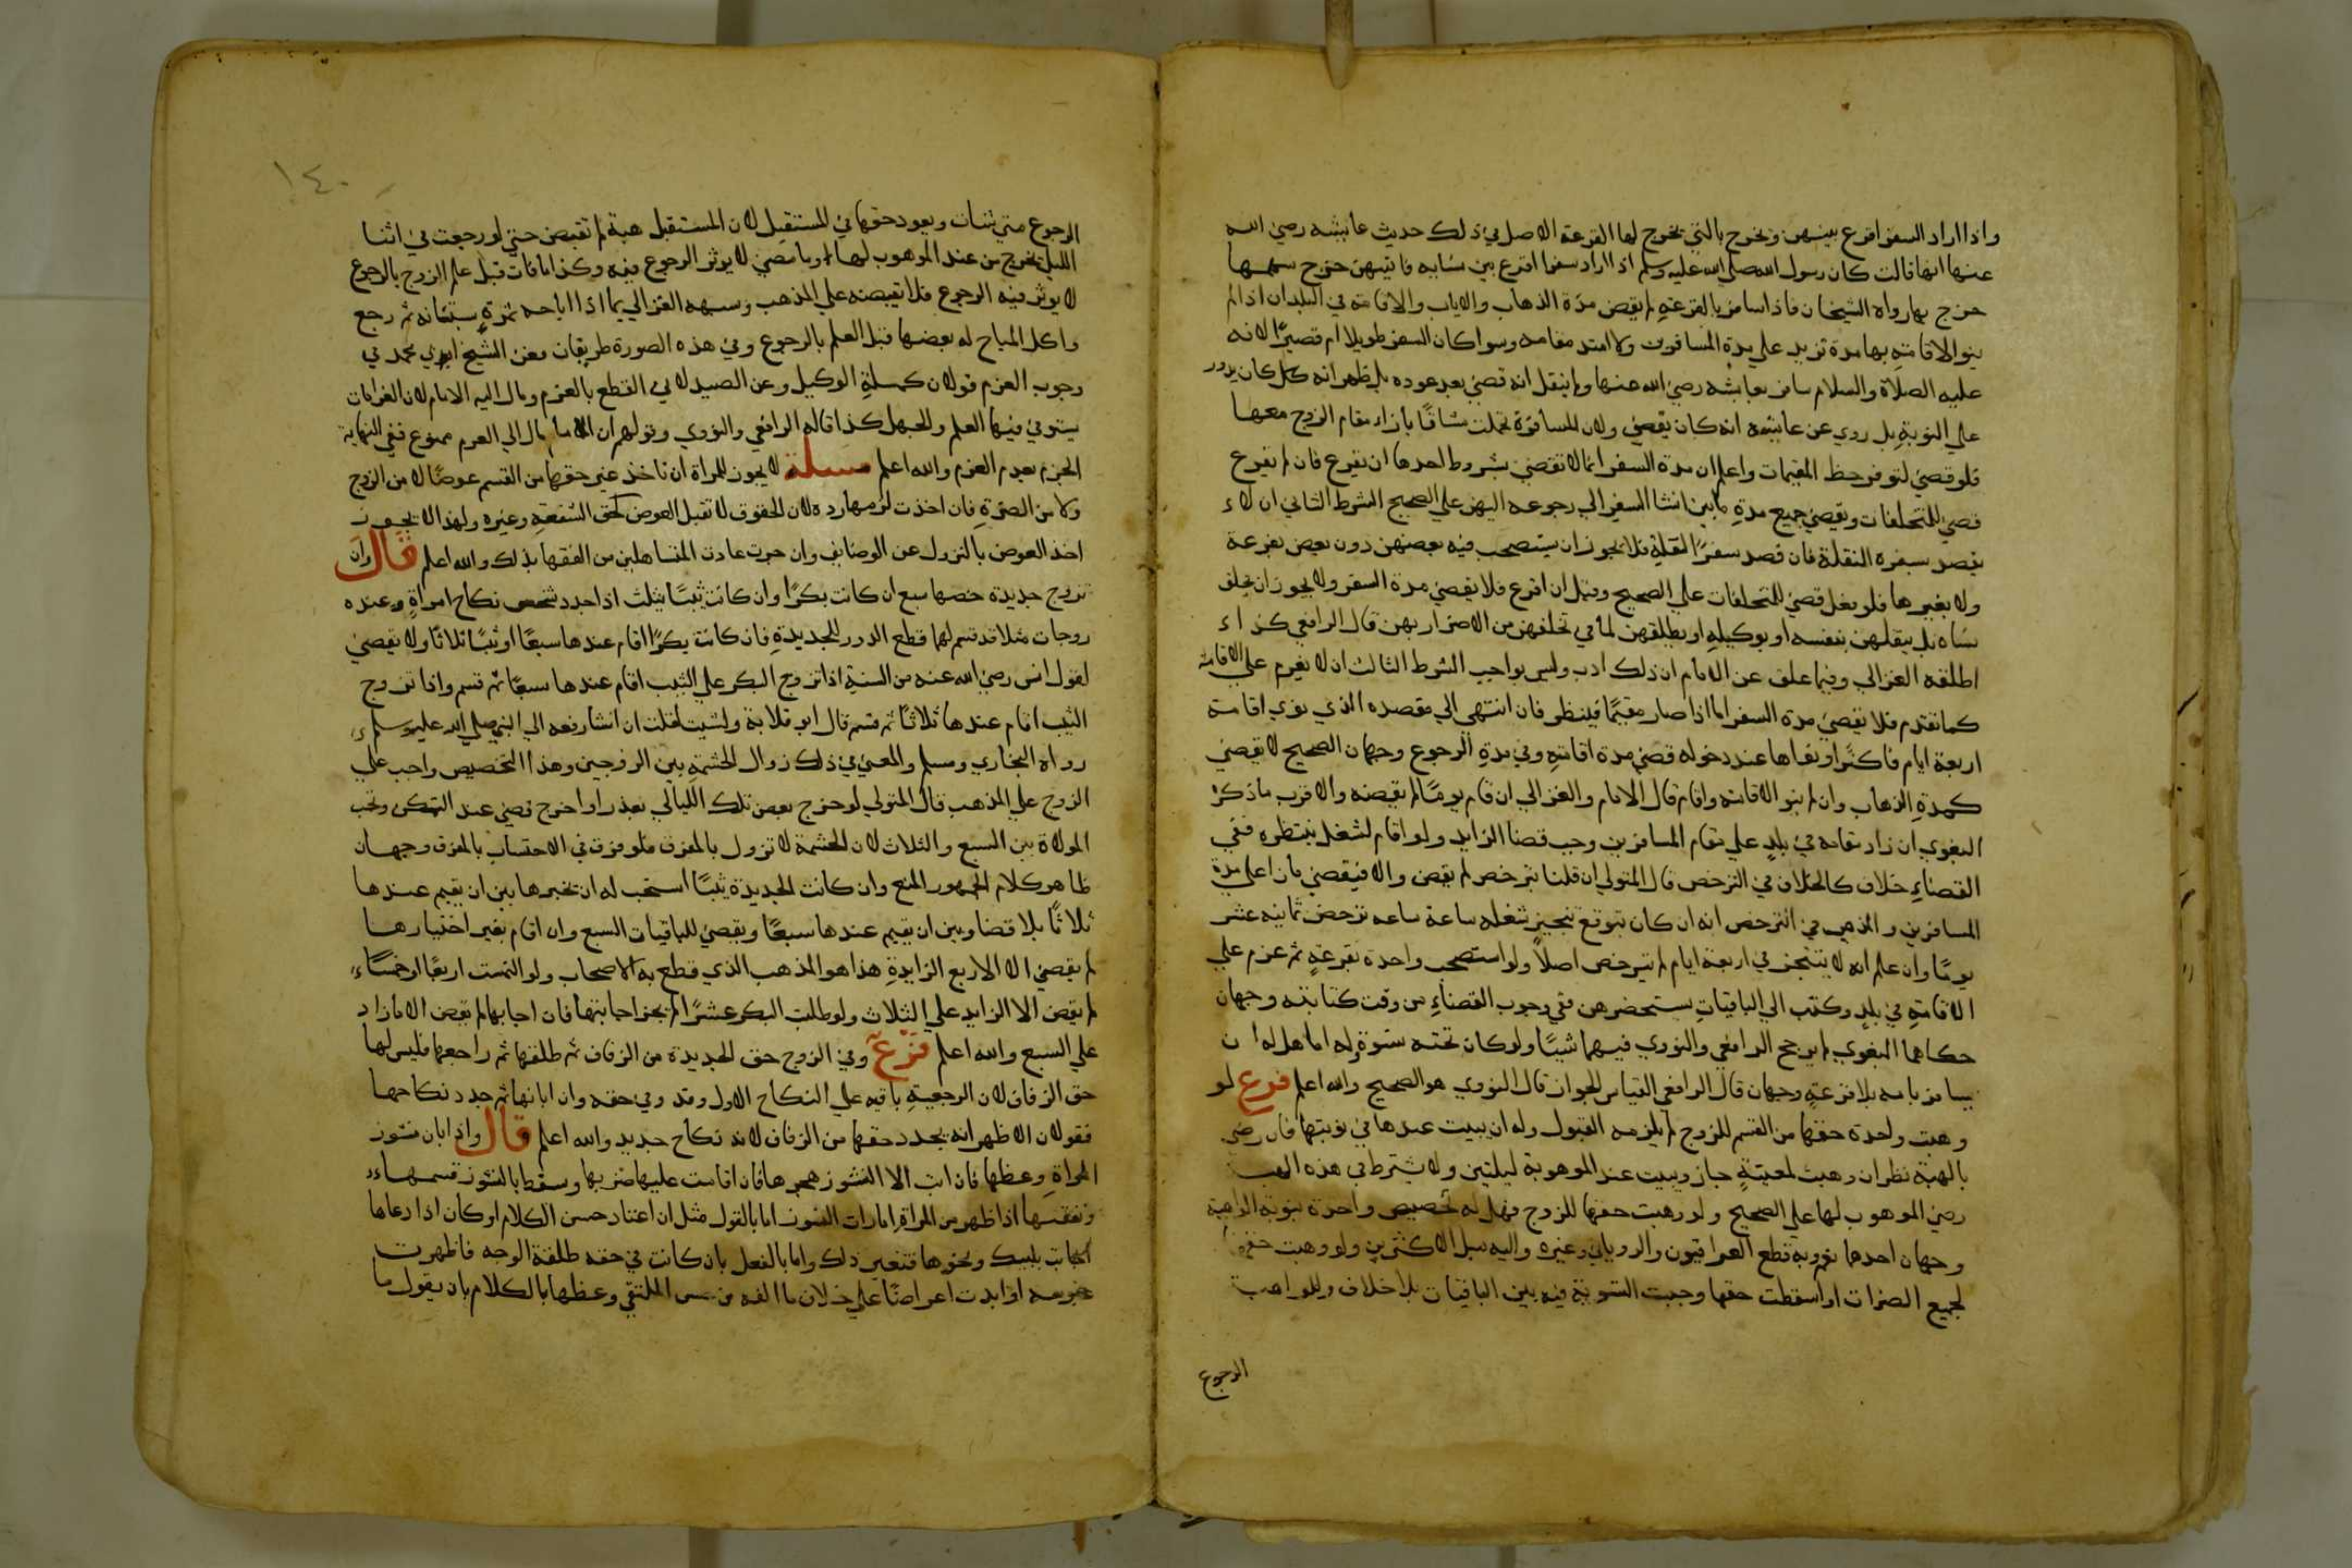 واذا اراد السفر اقرع بينهن ويخرج بالتي تخرج لها القرعة الاصل في ذلك حديث عايشه رضي الله
عنها انها قالت كان رسول الله صلي الله عليه وسلم اذا اراد سفرا اقرع بين نسايه فايتهن خرج سهمها
خرج بها رواه الشيخان فاذا سافر بالقرعةِ لم يقض مدة الذهاب والاياب والاقامه في البلدان اذا لم
ينو الاقامةِ بها مدة تزيد علي مدة المسافرين ولا امتد مقامه وسوا كان السفر طويلا ام قصيرًا لانه
عليه الصلاة والسلام سافر بعايشه رضي الله عنها ولم ينقل انه قضي بعد عوده بل ظهر انه كان يدور
علي النوبةِ بل روي عن عايشه انه كان يقضي ولان المسافرة تحملت مشاقًا بازاء مقام الزوج معها
فلو قضي لتوفر حظ المقيمات واعلم ان مدة السفر انما لا تقضي بشروط احدها ان يقرع فان لم يقرع
قضي للمتخلفات ويقضي جميع مدةِ ما بين انشا السفر الي رجوعه اليهن علي الصحيح الشرط الثاني ان لا
يقصد بسفره النقلة فان قصد سفرًا لنقلةٍ فلا يجوز ان يستصحب فيه بعضهن دون بعض بقرعة
ولا بغيرها فلو فعل قضي للمتخلفات علي الصحيح وقيل ان اقرع فلا يقضي مدة السفر ولا يجوز ان يخلف
نساه بل ينقلهن بنفسه او بوكيلهِ او يطلقهن لما في تخلفهن من الاضرار بهن قال الرافعي كذا
اطلقه الغزالي وفيما علق عن الامام ان ذلك ادب وليس بواجب الشرط الثالث ان لا يعزم علي الاقامة
كما تقدم فلا تقضي مدة السفر اما اذا صار مقيمًا فينظر فان انتهي الي مقصده الذي نوي اقامة
اربعة ايام فاكثر او نواها عند دخوله قضي مدة اقامتهِ وفي مدةِ الرجوع وجهان الصحيح لا يقضي
كمدةِ الذهاب وان لم ينو الاقامة واقام قال الامام والغزالي ان قام يومًا لم يقضه والاقرب ما ذكرهُ
البغوي ان زاد مقامه في بلدٍ علي مقام المسافرين وجب قضا الزايد ولو اقام لشغل ينتظره ففي
القضاءِ خلاف كالخلاف في الترخص قال المتولي ان قلنا يترخص لم يقض والا فيقضي ما زاد علي مدة
المسافرين والمذهب في الترخص انه ان كان يتوقع تنجيز شغله ساعة ساعه ترخص ثمانيه عشر
يومًا وان علم انه لا يتنجز في اربعة ايام لم يترخص اصلاً ولو استصحب واحدة بقرعةٍ ثم عزم علي
الاقامةِ في بلدٍ وكتب الي الباقياتِ يستحضرهن ففي وجوب القضاءِ من وقت كتابته وجهان
حكاهما البغوي لم يرجح الرافعي والنووي فيهما شييًا ولو كان تحته نسوة وله اما هل له ان
يسافر بامه بلا قرعةٍ وجهان قال الرافعي القياس الجواز قال النووي هو الصحيح والله اعلم فرع لو
وهبت واحدة حقها من القسم للزوج لم يلزمه القبول وله ان يبيت عندها في نوبتها فان رضي
بالهبة نظر ان وهبت لمعينةٍ جاز ويبيت عند الموهوبة ليلتين ولا يشترط في هذه الهبة
رضي الموهوب لها علي الصحيح ولو وهبت حقها للزوج فهل له تخصيص واحدة بنوبة الواهبة
وجهان احدها نعم وبه قطع العراقيون والروياني وغيره واليه ميل الاكثرين ولو وهبت حقها
لجميع الضرات او اسقطت حقها وجبت التسوية فيه بين الباقيات بلا خلاف وللواهبة
الرجوع
١٤٠
الرجوع متي شات ويعود حقها في المستقبل لان المستقبل هبة لم تقبض حتي لو رجعت في اثنا
الليل يخرج من عند الموهوب لها وما مضي لا يوثر الرجوع فيه وكذا ما فات قبل علم الزوج بالرجوع
لا يوثر فيه الرجوع فلا يقضه علي المذهب وشبهه الغزالي بما اذا اباحه ثمرةِ بستانه ثم رجع
واكل المباح له بعضها قبل العلم بالرجوع وفي هذه الصورة طريقان فعن الشيخ ابي محمد في
وجوب الغرم قولان كمسلةِ الوكيل وعن الصيدلاني القطع بالغرم ومال اليه الامام لان الغرامات
يستوي فيها العلم والجهل كذا قاله الرافعي والنووي وقولهم ان الامام مال الي الغرم ممنوع ففي النهاية
الجزم بعدم الغرم والله اعلم مسلة لا يجوز للمراة ان تاخذ عن حقها من القسم عوضًا لا من الزوج
ولا من الضرةِ فان اخذت لزمها رده لان الحقوق لا تقبل العوض كحق الشفعةِ وغيره ولهذا لا يجوز
اخذ العوض بالنزول عن الوضايف وان جرت عادت المتساهلين من الفقها بذلك والله اعلم قال وان
تزوج جديدة خصها بسبع ان كانت بكرًا وان كانت ثيبًا بثلث اذا جدد شخص نكاح امراةٍ وعنده
زوجات مثلا قد قسم لهما قطع الدور للجديدةِ فان كانت بكرًا اقام عندها سبعًا او ثيبًا ثلاثًا ولا يقضي
لقول انس رضي الله عنه من السنةِ اذا تزوج البكر علي الثيب اقام عندها سبعًا ثم قسم واذا تزوج
الثيب اقام عندها ثلاثًا ثم قسم قال ابو قلابة ولو شيت لقلت ان انسًا رفعه الي النبي صلي الله عليه وسلم
رواه البخاري ومسلم والمعني في ذلك زوال الحشمةِ بين الزوجين وهذا التخصيص واجب علي
الزوج علي المذهب قال المتولي لو خرج بعض تلك الليالي بعذر او اخرج قضي عند التمكن وتجب
الموالاة بين السبع والثلاث لان الحشمة لا تزول بالمفرق فلو فرق ففي الاحتساب بالمفرق وجهان
ظاهر كلام الجمهور المنع وان كانت الجديدة ثيبًا استحب له ان يخيرها بين ان يقيم عندها
ثلاثًا بلا قضا وبين ان يقيم عندها سبعًا ويقضي للباقيات السبع وان اقام بغير اختيارها
لم يقضي الا الاربع الزايدةِ هذا هو المذهب الذي قطع به الاصحاب ولو التمست اربعًا او خمسًا
لم يقض الا الزايد علي الثلاث ولو طلبت البكر عشرًا لم يجز اجابتها فان اجابها لم يقض الا ما زاد
علي السبع والله اعلم فرع وفي الزوج حق الجديدة من الزفاف ثم طلقها ثم راجعها فليس لها
حق الزفاف لان الرجعيةِ باقيه علي النكاح الاول وقد وفي حقه وان ابانها ثم جدد نكاحها
فقولان الاظهر انه يجدد حقها من الزفاف لانه نكاح جديد والله اعلم قال واذا بان نشوز
المراةِ وعظها فان ابت الا النشوز هجرها فان اقامت عليها ضربها وسقط بالنشوز قسمها
ونفقتها اذا ظهر من المراةِ امارات النشوز اما بالقول مثل ان اعتاد حسن الكلام او كان اذا دعاها
اجابت بلبيك ونحوها فتغير ذلك واما بالفعل بان كانت في حقه طلقة الوجه فاظهرت
عبوسه او ابدت اعراضًا علي خلاف ما الفه من حسن الملتقي وعظها بالكلام بان يقول ما